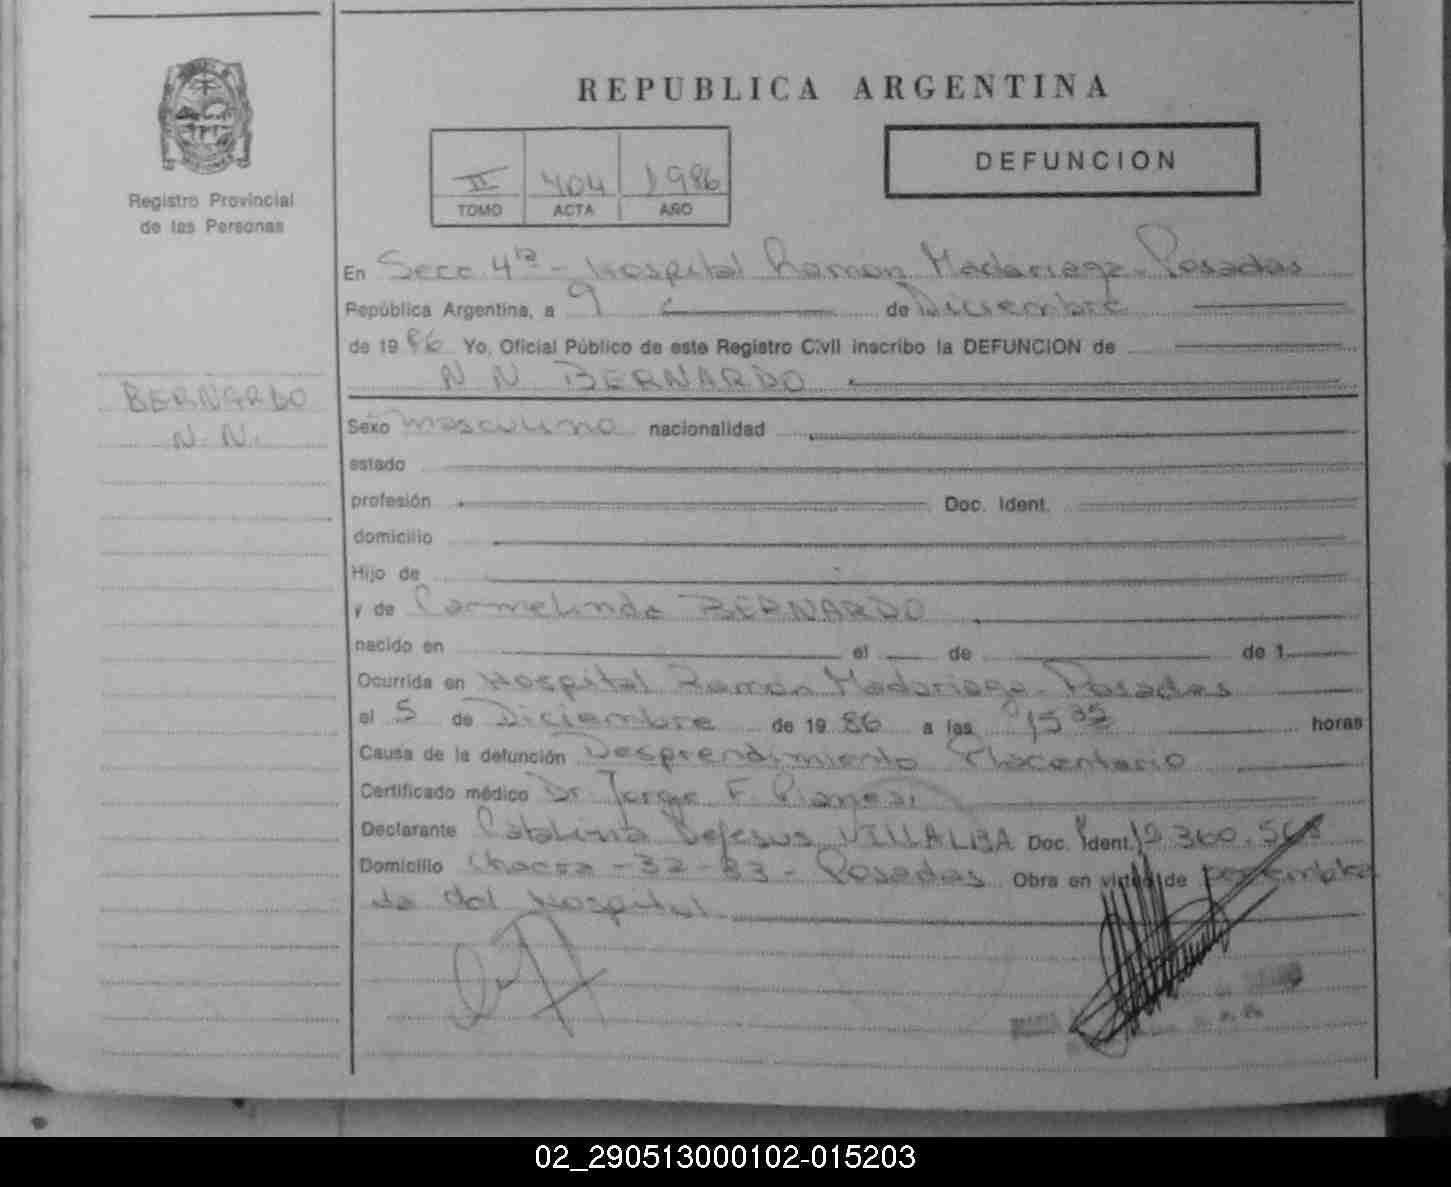 REPUBLICA ARGENTINA
Registro Provincial
de las Personas
II 404 1986
TOMO ACTA AÑO
DEFUNCION
BERNARDO
N. N.
En Secc. 4ta - Hospital Ramón Madariaga - Posadas
República Argentina, a 9 de Diciembre
de 1986 Yo, Oficial Público de este Registro Civil inscribo la DEFUNCION de
N N BERNARDO
Sexo masculino nacionalidad
estado
profesión Doc. Ident.
domicilio
Hijo de
y de Carmelinda BERNARDO
nacido en el de de 1
Ocurrida en Hospital Ramón Madariaga - Posadas
el 5 de Diciembre de 1986 a las 15 35 horas
Causa de la defunción Desprendimiento Placentario
Certificado médico Dr. Jorge F.
Declarante Catalina Dejesus VILLALBA Doc. Ident.
Domicilio Chacra - 32-33 - Posadas Obra en virtud de
del Hospital
02_290513000102-015203